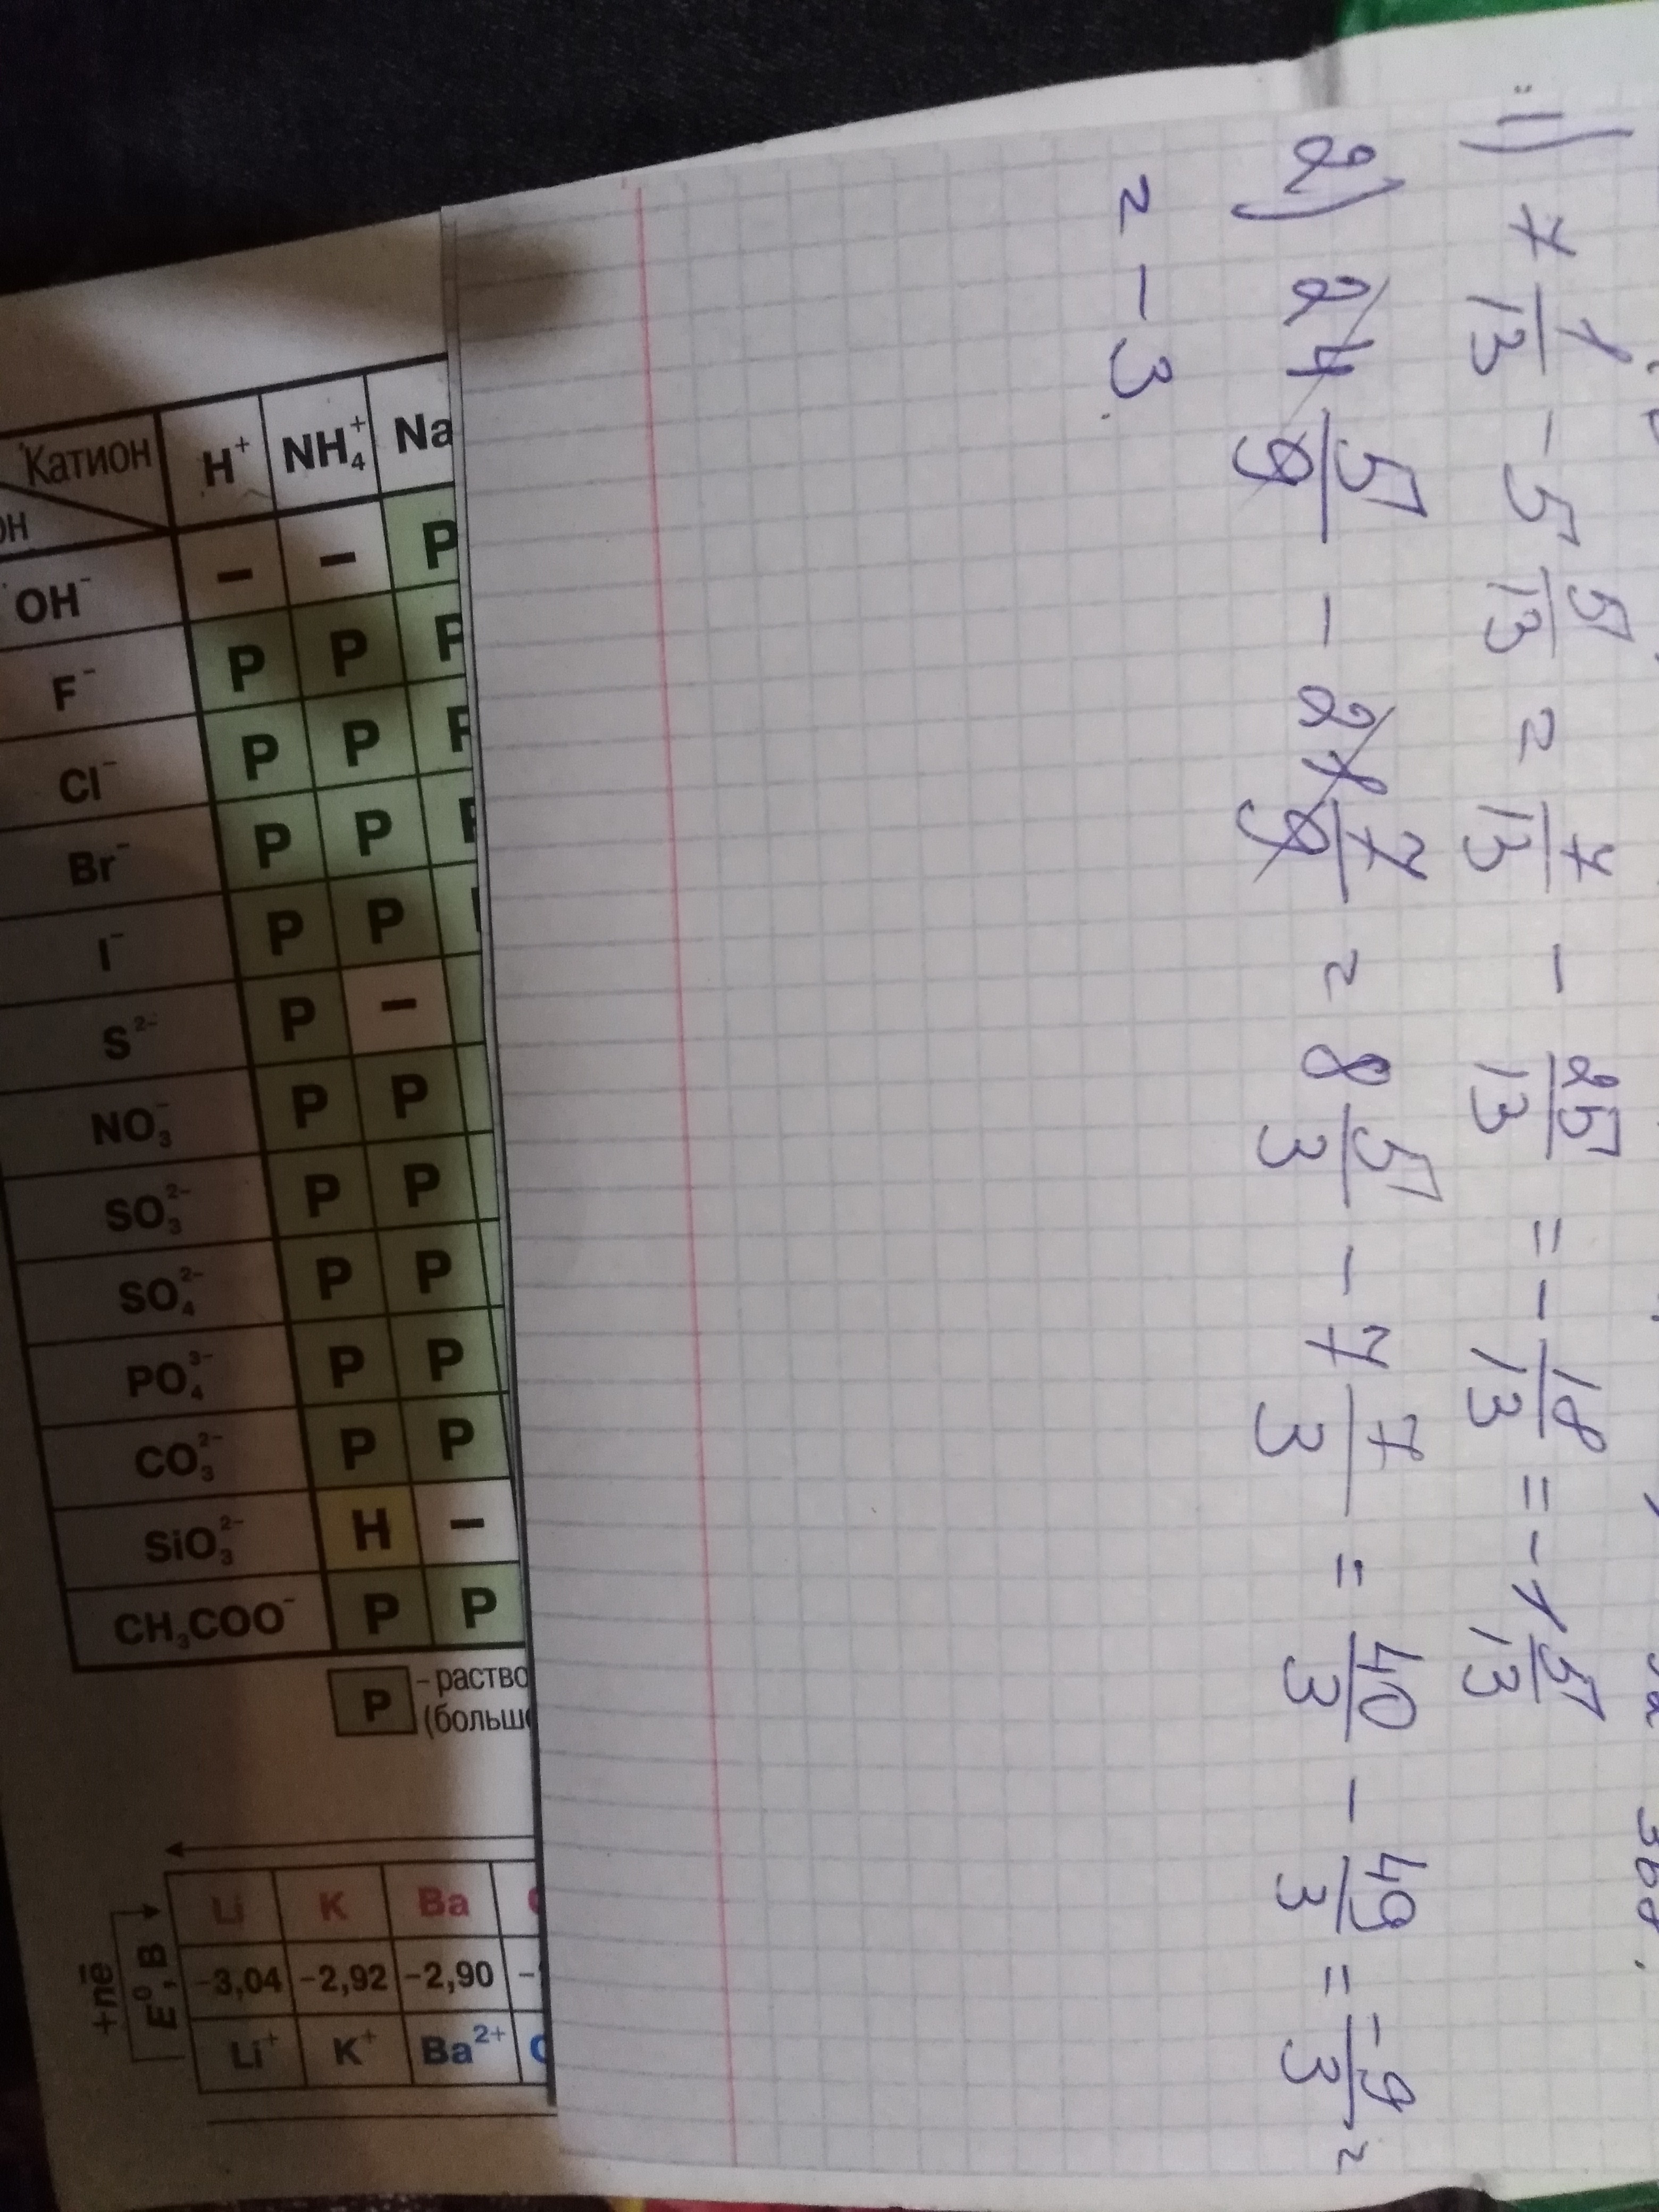 1) 7 1/13 - 5 5/13 = 7/13 - 25/13 = - 18/13 = - 1 5/13
2) 24 5/9 - 21 7/9 = 8 5/3 - 7 7/3 = 40/3 - 49/3 = -9/3 =
= - 3.
Катион H⁺ NH₄⁺ Na
OH⁻ – – P
F⁻ P P P
Cl⁻ P P P
Br⁻ P P P
I⁻ P P
S²⁻ P –
NO₃⁻ P P
SO₃²⁻ P P
SO₄²⁻ P P
PO₄³⁻ P P
CO₃²⁻ P P
SiO₃²⁻ H –
CH₃COO⁻ P P
P - раство
(больш
Li K Ba
-3,04 -2,92 -2,90
Li⁺ K⁺ Ba²⁺
E⁰, В
+nē